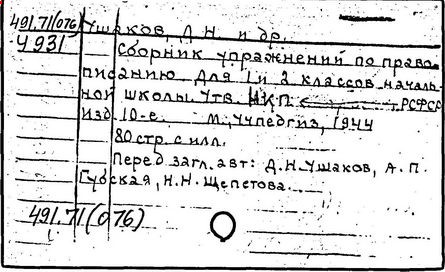 491.71(076) Ушаков, Д Н. и др.
У 931
Сборник упражнений по право-
писанию для 1 и 2 классов началь-
ной школы. Утв. НКП РСФСР
Изд. 10-е. М., Учпедгиз, 1944
80 стр. с илл.
Перед загл. авт: Д.Н. Ушаков, А. П.
Губская, Н.Н. Щепетова
491.71(076)